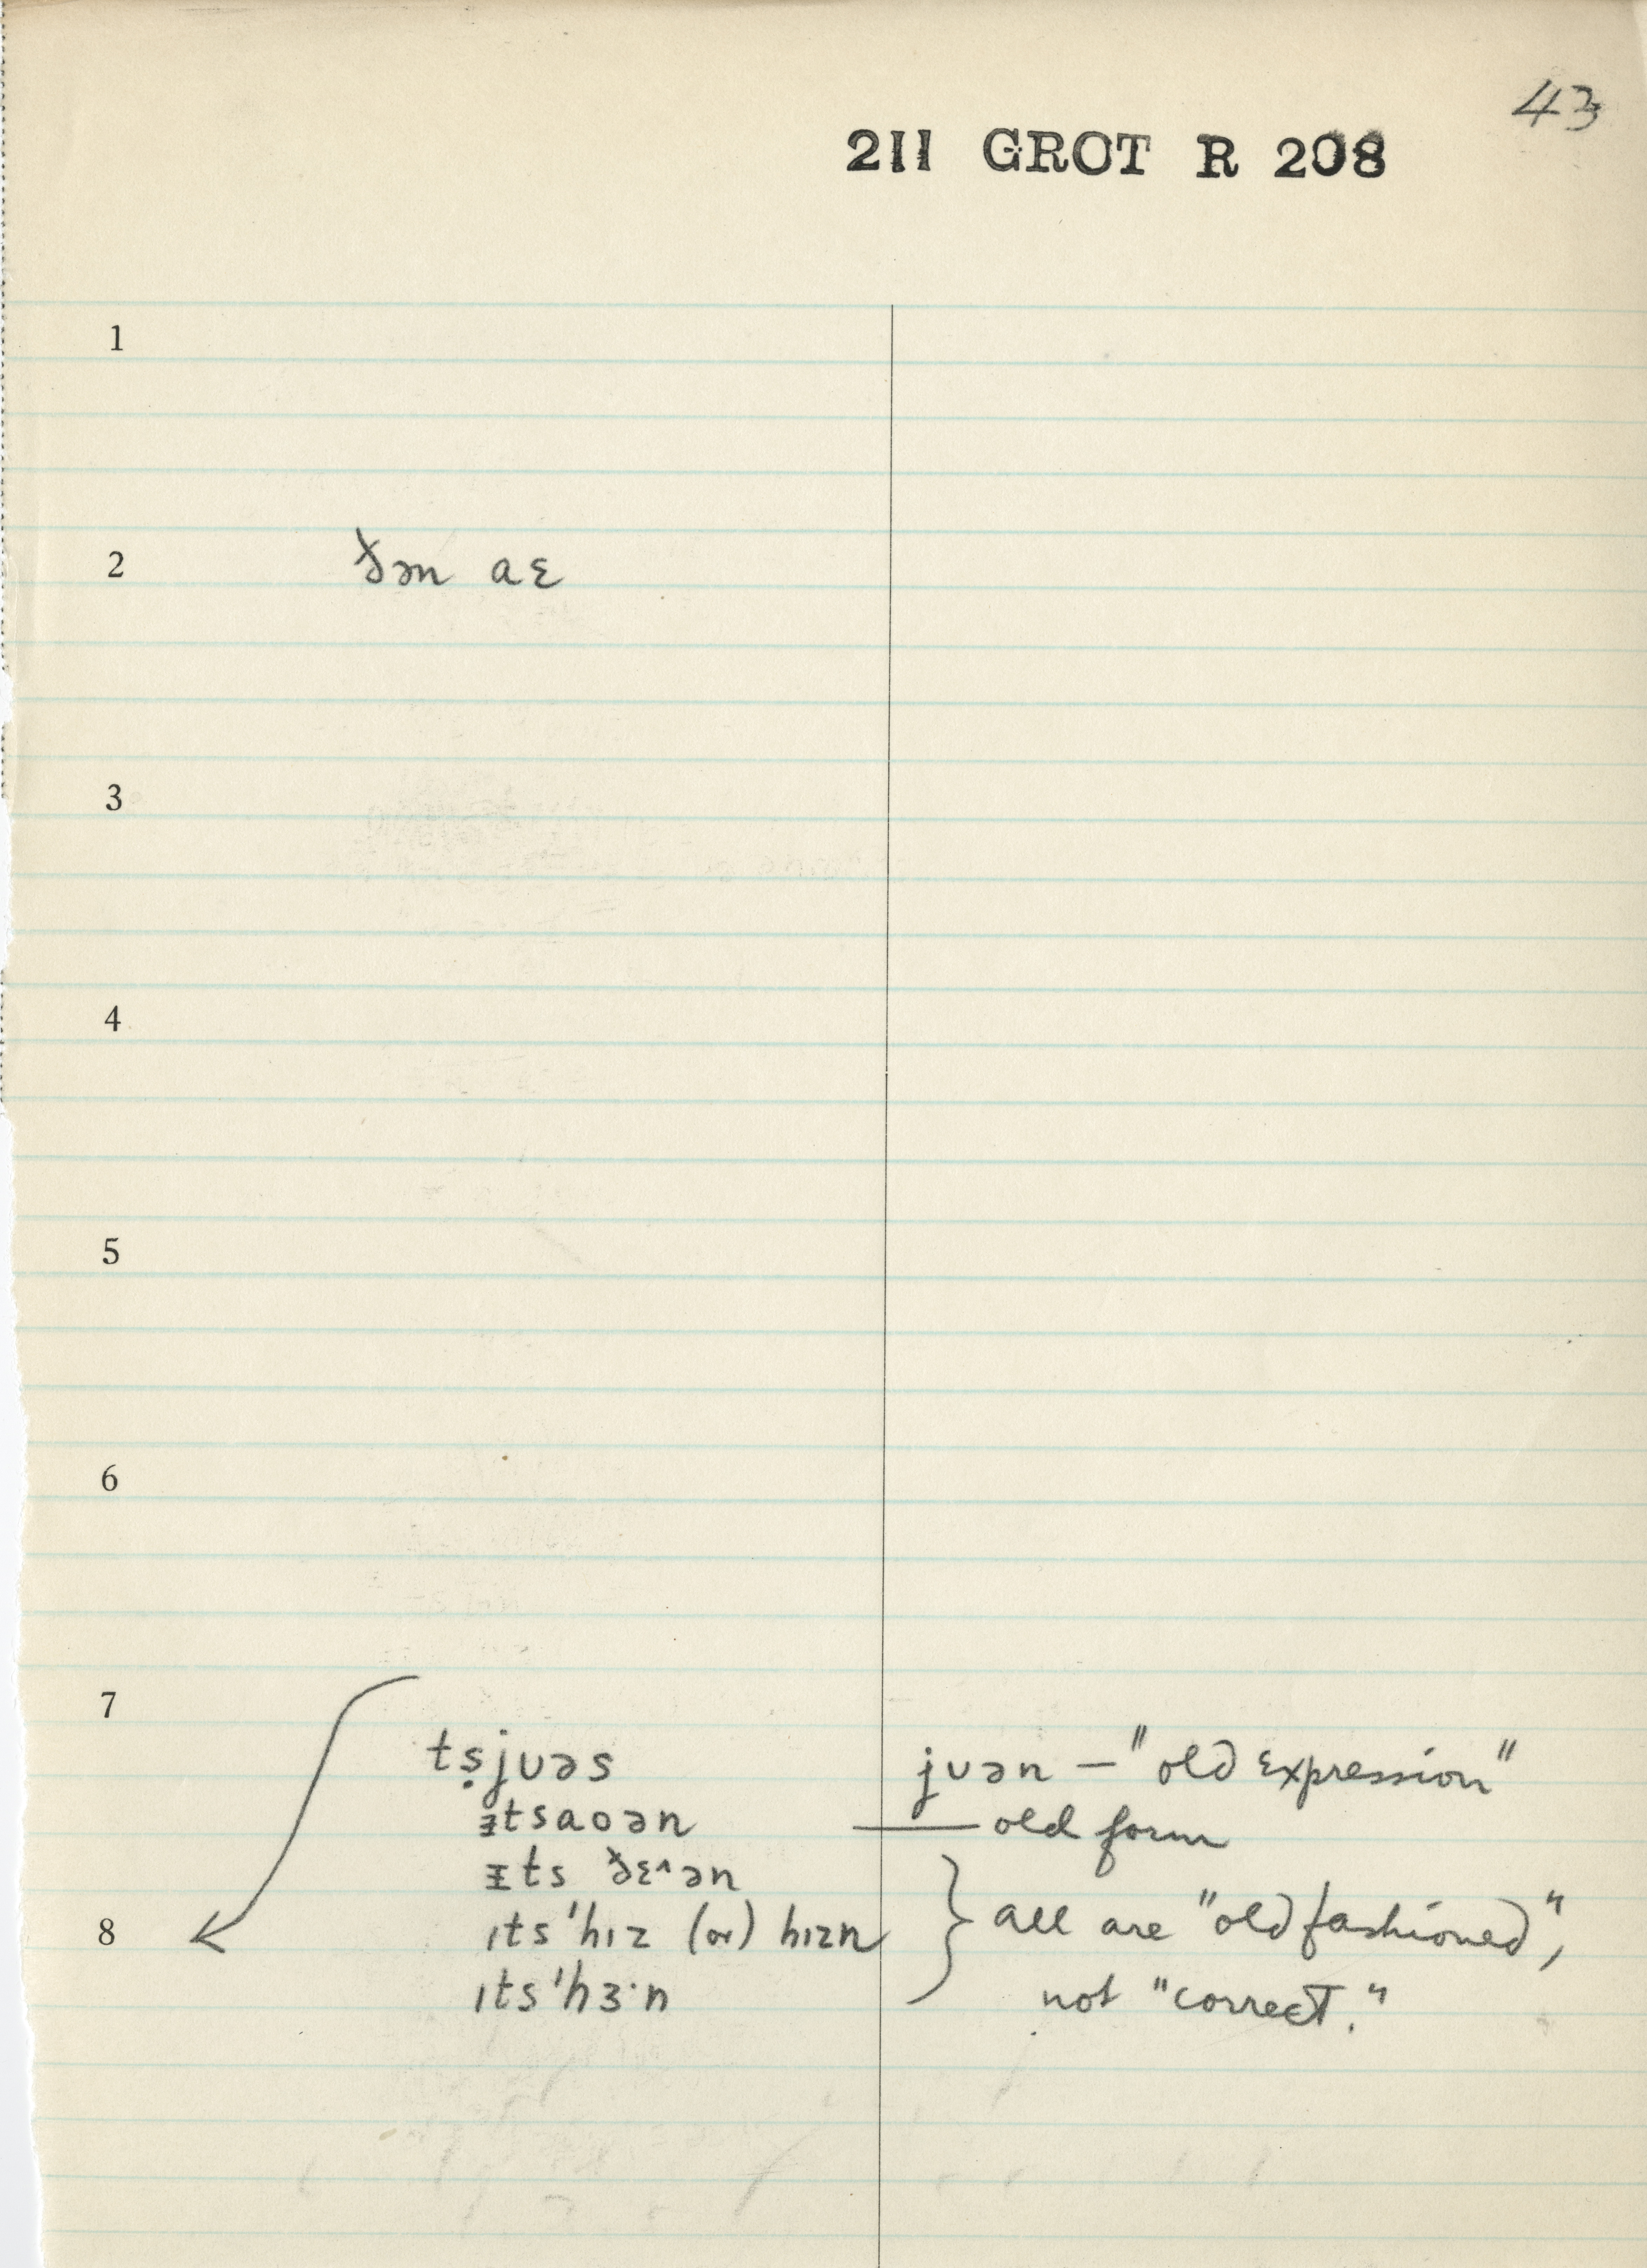 43
211 GROT R 208
1
2 ðən aɛ
3
4
5
6
7
tṣjʊəs jʊən — "old expression"
ᵻtsaoən — old form
ᵻts ðɛ^ən
8 ɪts'hɪz (or) hɪzn } all are "old fashioned",
ɪts'hɜ·n not "correct."